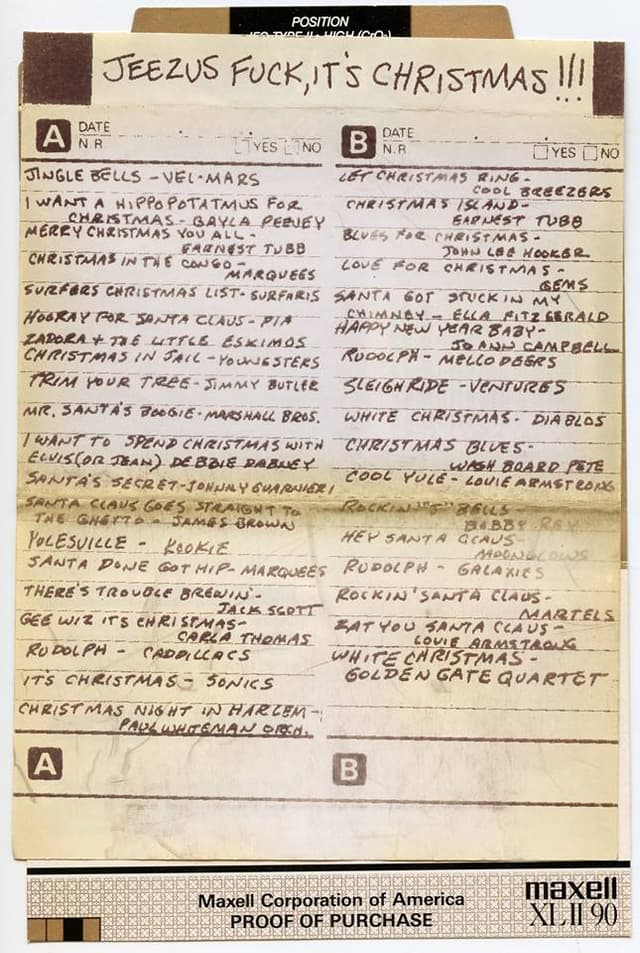 POSITION
IEC TYPE II · HIGH (CrO₂)
JEEZUS FUCK, IT'S CHRISTMAS!!!
A DATE
N.R YES NO
JINGLE BELLS - VEL-MARS
I WANT A HIPPOPOTATMUS FOR
CHRISTMAS - GAYLA PEEVEY
MERRY CHRISTMAS YOU ALL -
EARNEST TUBB
CHRISTMAS IN THE CONGO -
MARQUEES
SURFERS CHRISTMAS LIST - SURFARIS
HOORAY FOR SANTA CLAUS - PIA
ZADORA + THE LITTLE ESKIMOS
CHRISTMAS IN JAIL - YOUNGSTERS
TRIM YOUR TREE - JIMMY BUTLER
MR. SANTA'S BOOGIE - MARSHALL BROS.
I WANT TO SPEND CHRISTMAS WITH
ELVIS (OR JEAN) DEBBIE DABNEY
SANTA'S SECRET - JOHNNY GUARNIERI
SANTA CLAUS GOES STRAIGHT TO
THE GHETTO - JAMES BROWN
YULESVILLE - KOOKIE
SANTA DONE GOT HIP - MARQUEES
THERE'S TROUBLE BREWIN' -
JACK SCOTT
GEE WIZ IT'S CHRISTMAS -
CARLA THOMAS
RUDOLPH - CADDILLACS
IT'S CHRISTMAS - SONICS
CHRISTMAS NIGHT IN HARLEM -
PAUL WHITEMAN ORCH.
A
B DATE
N.R YES NO
LET CHRISTMAS RING -
COOL BREEZERS
CHRISTMAS ISLAND -
EARNEST TUBB
BLUES FOR CHRISTMAS -
JOHN LEE HOOKER
LOVE FOR CHRISTMAS -
GEMS
SANTA GOT STUCK IN MY
CHIMNEY - ELLA FITZGERALD
HAPPY NEW YEAR BABY -
JO ANN CAMPBELL
RUDOLPH - MELLO DEERS
SLEIGH RIDE - VENTURES
WHITE CHRISTMAS - DIABLOS
CHRISTMAS BLUES -
WASH BOARD PETE
COOL YULE - LOUIE ARMSTRONG
ROCKIN' "J" BELLS -
BOBBY REY
HEY SANTA CLAUS -
MOONGLOWS
RUDOLPH - GALAXIES
ROCKIN' SANTA CLAUS -
MARTELS
ZAT YOU SANTA CLAUS -
LOUIE ARMSTRONG
WHITE CHRISTMAS -
GOLDEN GATE QUARTET
B
Maxell Corporation of America
PROOF OF PURCHASE
maxell
XLII 90